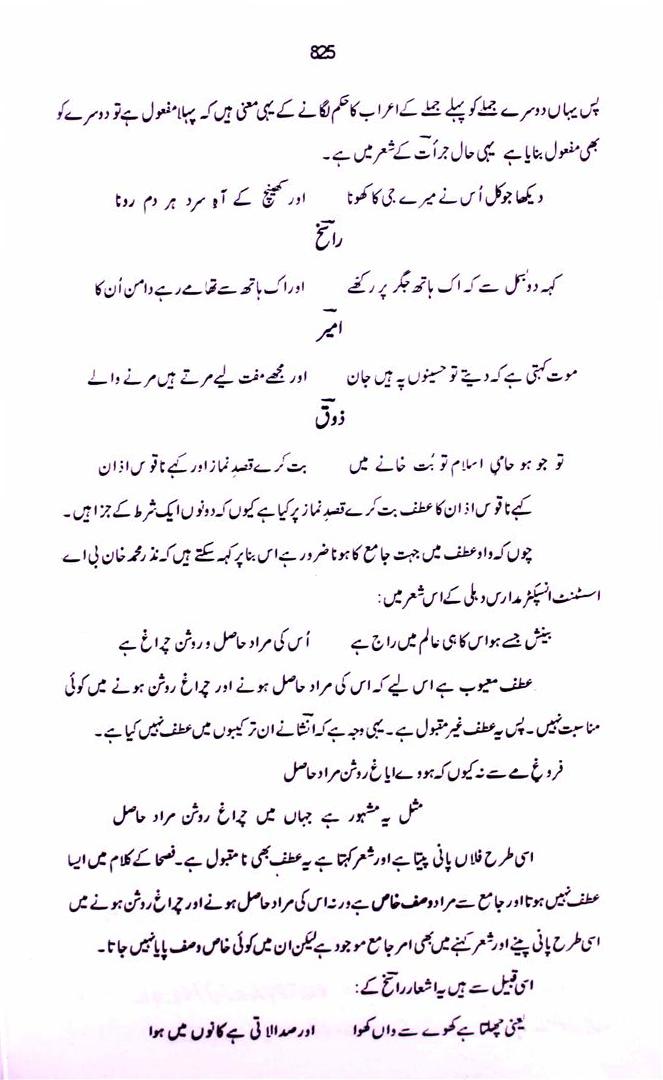 825
پس یہاں دوسرے جملے کو پہلے جملے کے اعراب کا حکم لگانے کے یہی معنی ہیں کہ پہلا مفعول ہے تو دوسرے کو
بھی مفعول بنایا ہے یہی حال جرأت کے شعر میں ہے۔
دیکھا جو کل اُس نے میرے جی کا کھونا اور کھینچ کے آہِ سرد ہر دم رونا
راسخ
کہہ دو بسمل سے کہ اک ہاتھ جگر پر رکھے اور اک ہاتھ سے تھامے رہے دامن اُن کا
امیر
موت کہتی ہے کہ دیتے تو حسینوں پہ ہیں جان اور مجھے مفت لیے مرتے ہیں مرنے والے
ذوق
تو جو ہو حامیِ اسلام تو بُت خانے میں بت کرے قصدِ نماز اور کہے ناقوس اذان
کہے ناقوس اذان کا عطف بت کرے قصدِ نماز پر کیا ہے کیوں کہ دونوں ایک شرط کے جزا ہیں۔
چوں کہ واوِ عطف میں جہت جامع کا ہونا ضرور ہے اس بنا پر کہہ سکتے ہیں کہ نذر محمد خان بی اے
اسسٹنٹ انسپکٹر مدارس دہلی کے اس شعر میں:
بینش جسے ہو اس کا ہی عالم میں راج ہے اُس کی مراد حاصل و روشن چراغ ہے
عطف معیوب ہے اس لیے کہ اس کی مراد حاصل ہونے اور چراغ روشن ہونے میں کوئی
مناسبت نہیں۔ پس یہ عطف غیر مقبول ہے۔ یہی وجہ ہے کہ انشا نے ان ترکیبوں میں عطف نہیں کیا ہے۔
فروغِ مے سے نہ کیوں کہ ہووے ایاغ روشن مراد حاصل
مثل یہ مشہور ہے جہاں میں چراغ روشن مراد حاصل
اسی طرح فلاں پانی پیتا ہے اور شعر کہتا ہے یہ عطف بھی نامقبول ہے۔ فصحا کے کلام میں ایسا
عطف نہیں ہوتا اور جامع سے مراد وصف خاص ہے ورنہ اس کی مراد حاصل ہونے اور چراغ روشن ہونے میں
اسی طرح پانی پینے اور شعر کہنے میں بھی امر جامع موجود ہے لیکن ان میں کوئی خاص وصف پایا نہیں جاتا۔
اسی قبیل سے ہیں یہ اشعار راسخ کے:
یعنی چھلتا ہے کھوے سے واں کھوا اور صدا لاتی ہے کانوں میں ہوا